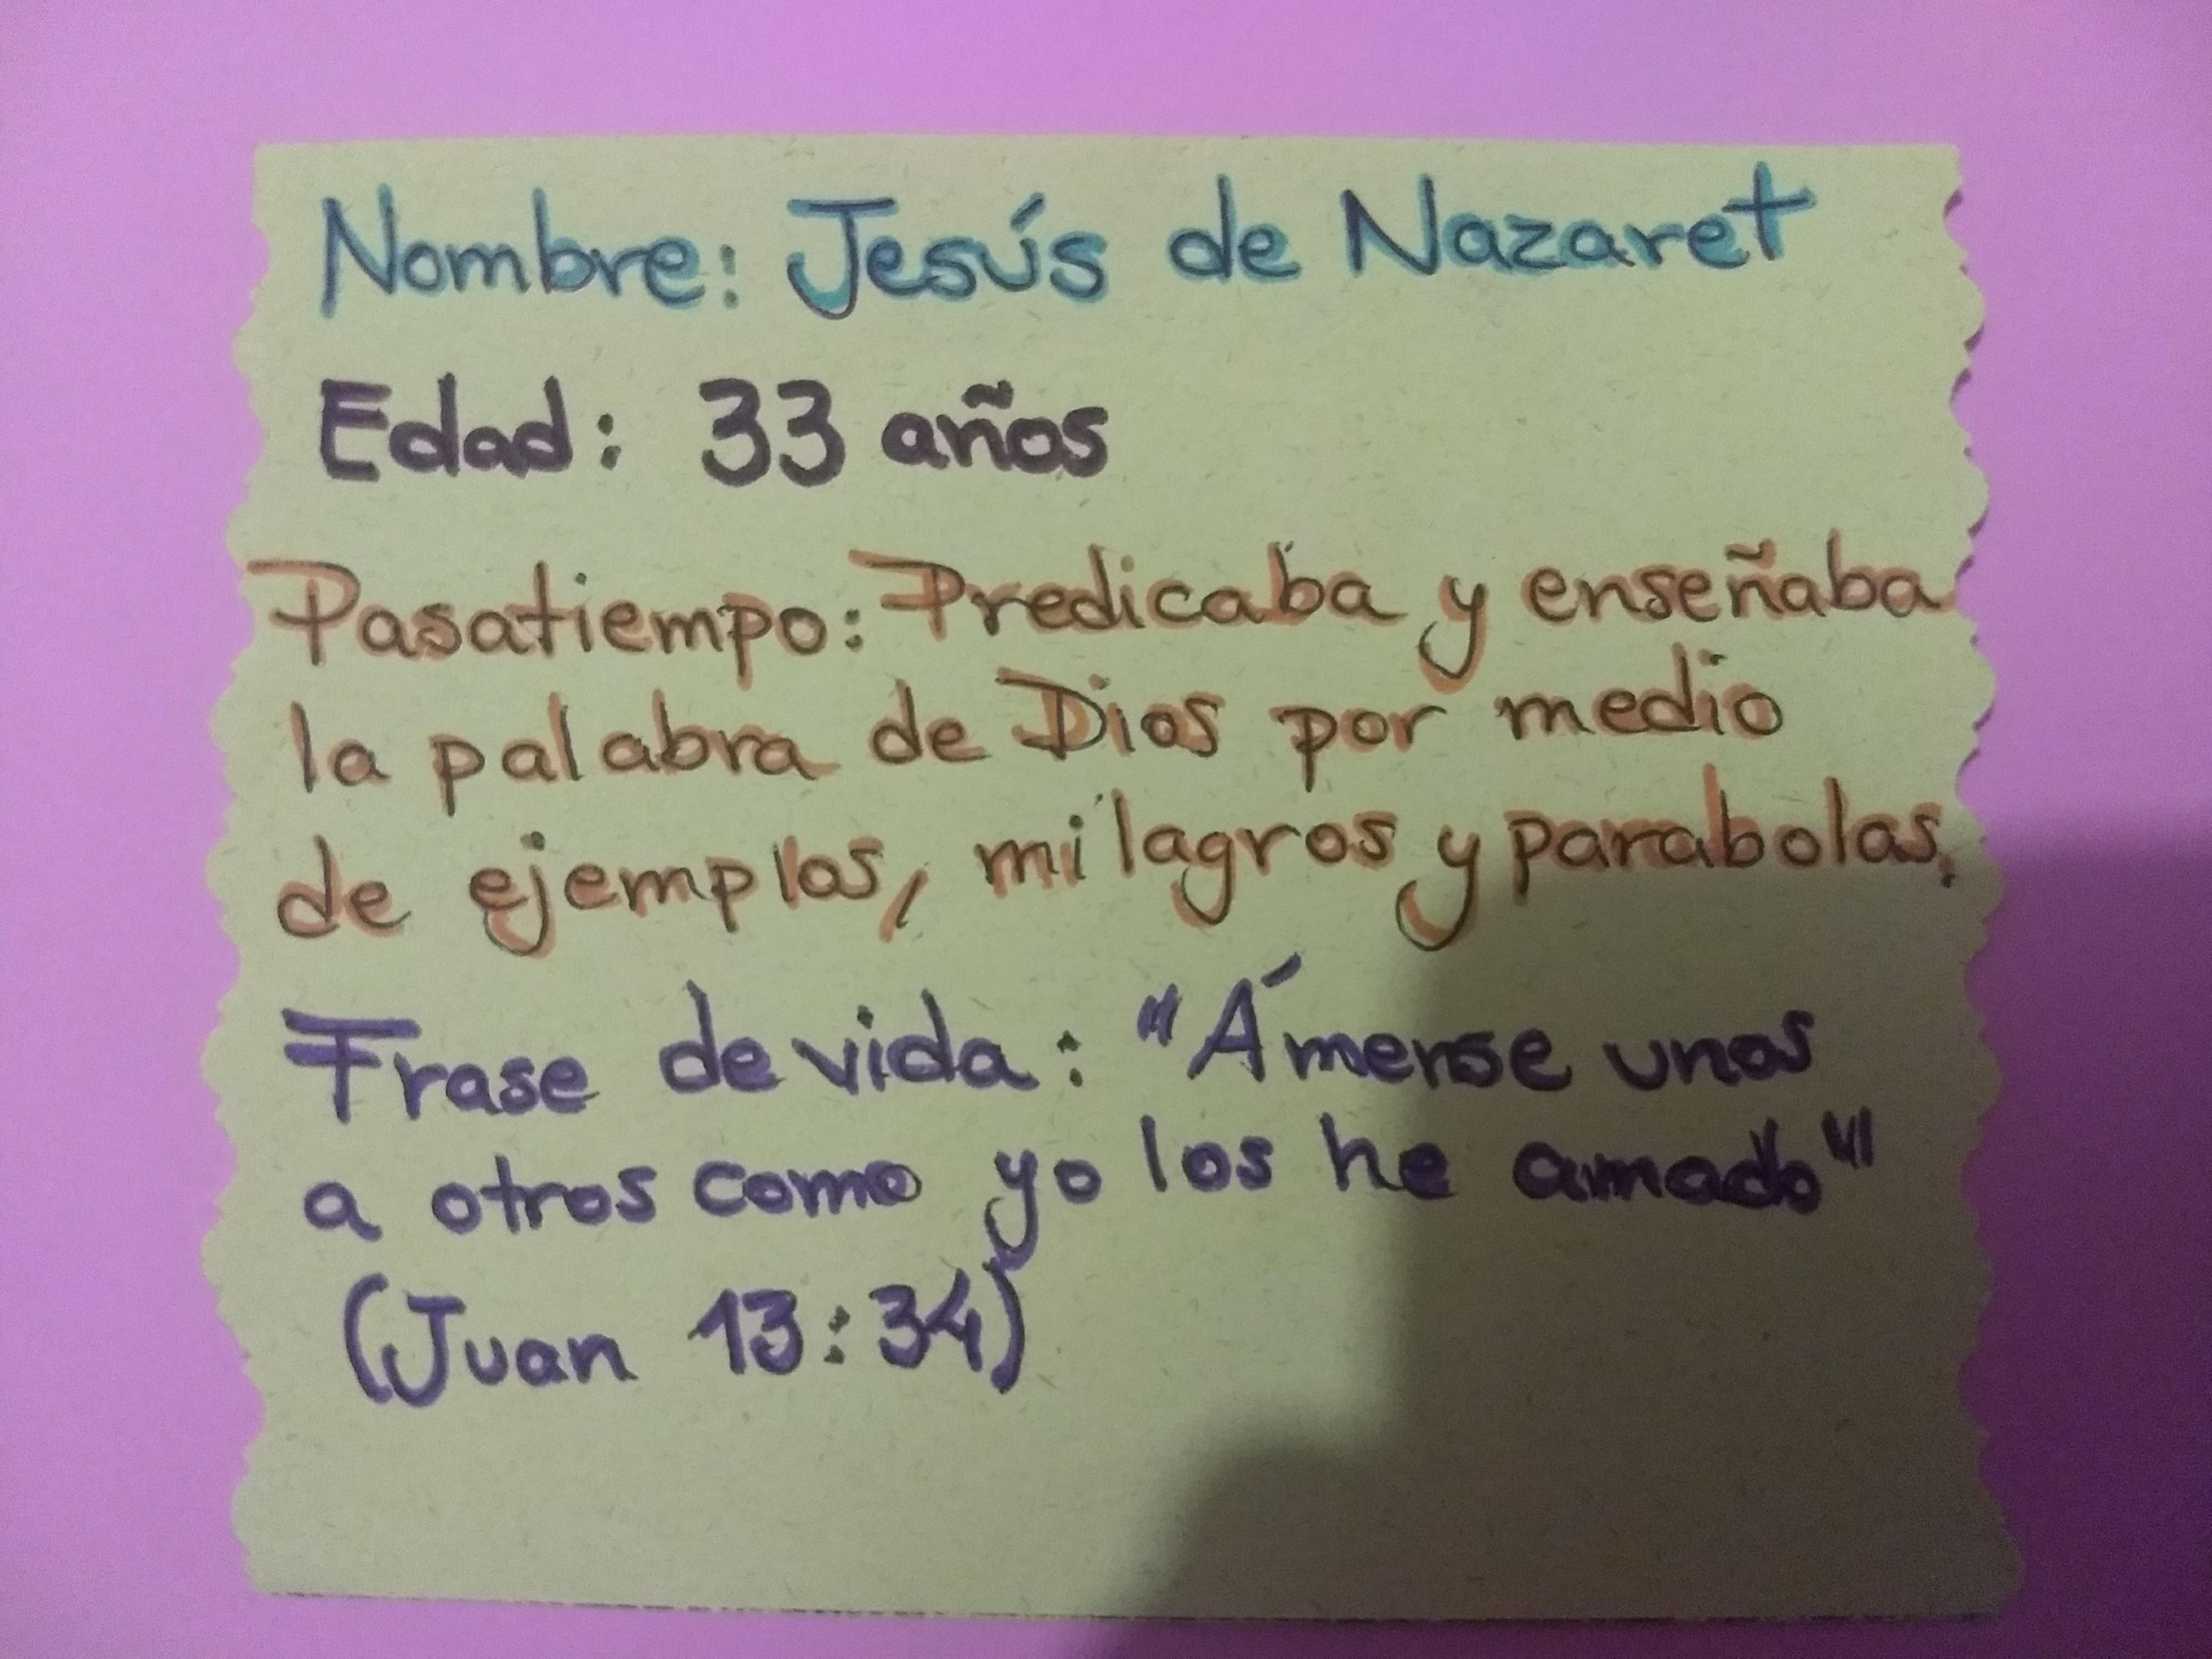 Nombre: Jesús de Nazaret
Edad: 33 años
Pasatiempo: Predicaba y enseñaba
la palabra de Dios por medio
de ejemplos, milagros y parabolas.
Frase de vida: "Ámense unos
a otros como yo los he amado"
(Juan 13:34)